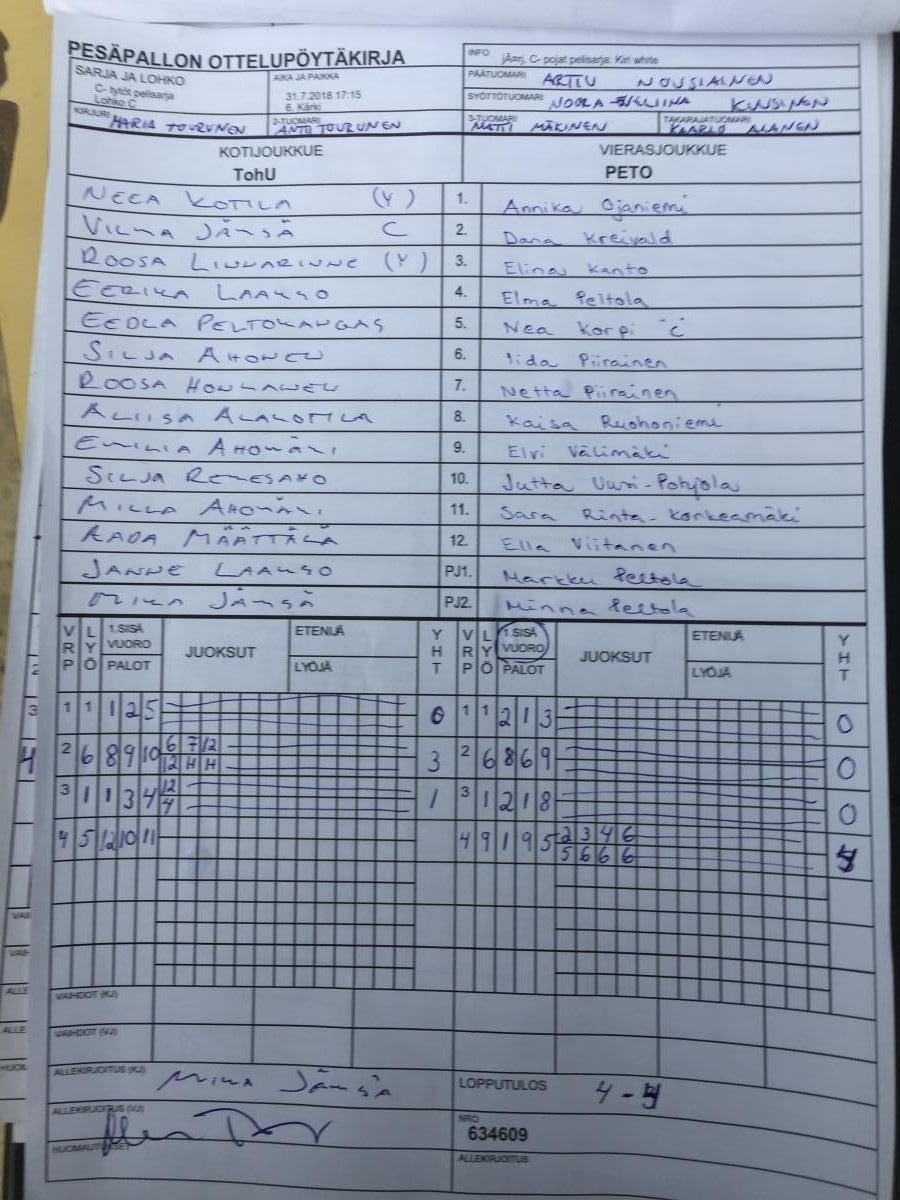 PESÄPALLON OTTELUPÖYTÄKIRJA
INFO jÄsrj, C- pojat pelisarja: Kiri white
SARJA JA LOHKO
C- tytöt pelisarja
Lohko C
AIKA JA PAIKKA
31.7.2018 17:15
6. Kärki
PÄÄTUOMARI ARTTU NOUSIAINEN
SYÖTTÖTUOMARI NOORA
KIRJURI MARIA TOURUNEN
2-TUOMARI ANTTI TOURUNEN
3-TUOMARI MATTI MÄKINEN
TAKARAJATUOMARI KAARLO ALANEN
KOTIJOUKKUE VIERASJOUKKUE
TohU PETO
NEEA KOTILA (Y) 1. Annika Ojaniemi
VILMA JÄMSÄ C 2. Dana Kreivald
ROOSA LINNARINNE (Y) 3. Elina Kanto
EERIKA LAAKSO 4. Elma Peltola
EEDLA PELTOKANGAS 5. Nea Korpi C
SILJA AHONEN 6. Iida Piirainen
ROOSA HONKANEN 7. Netta Piirainen
ALIISA ALAKOTILA 8. Kaisa Ruohoniemi
EMILIA AHOMÄKI 9. Elvi Välimäki
SILJA REKESAHO 10. Jutta Uusi-Pohjola
MILLA AHOMÄKI 11. Sara Rinta-Korkeamäki
AADA MÄÄTTÄLÄ 12. Ella Viitanen
JANNE LAAKSO PJ1. Markku Peltola
MIKA JÄMSÄ PJ2. Minna Peltola
VRP LYÖ 1.SISÄ VUORO PALOT JUOKSUT ETENIJÄ LYÖJÄ YHT VRP LYÖ 1.SISÄ VUORO PALOT JUOKSUT ETENIJÄ LYÖJÄ YHT
1 1 1 2 5 0 1 1 2 1 3 0
2 6 8 9 10 6 7 12 3 2 6 8 6 9 0
12 H H
3 1 1 3 4 12 1 3 1 2 1 8 0
4
4 5 12 10 11 4 9 1 9 5 2 3 4 6
5 6 6 6
VAIHDOT (KJ)
VAIHDOT (VJ)
ALLEKIRJOITUS (KJ) MIKA JÄMSÄ
LOPPUTULOS 4 -
ALLEKIRJOITUS (VJ)
NRO
634609
HUOMAUTUKSET
ALLEKIRJOITUS